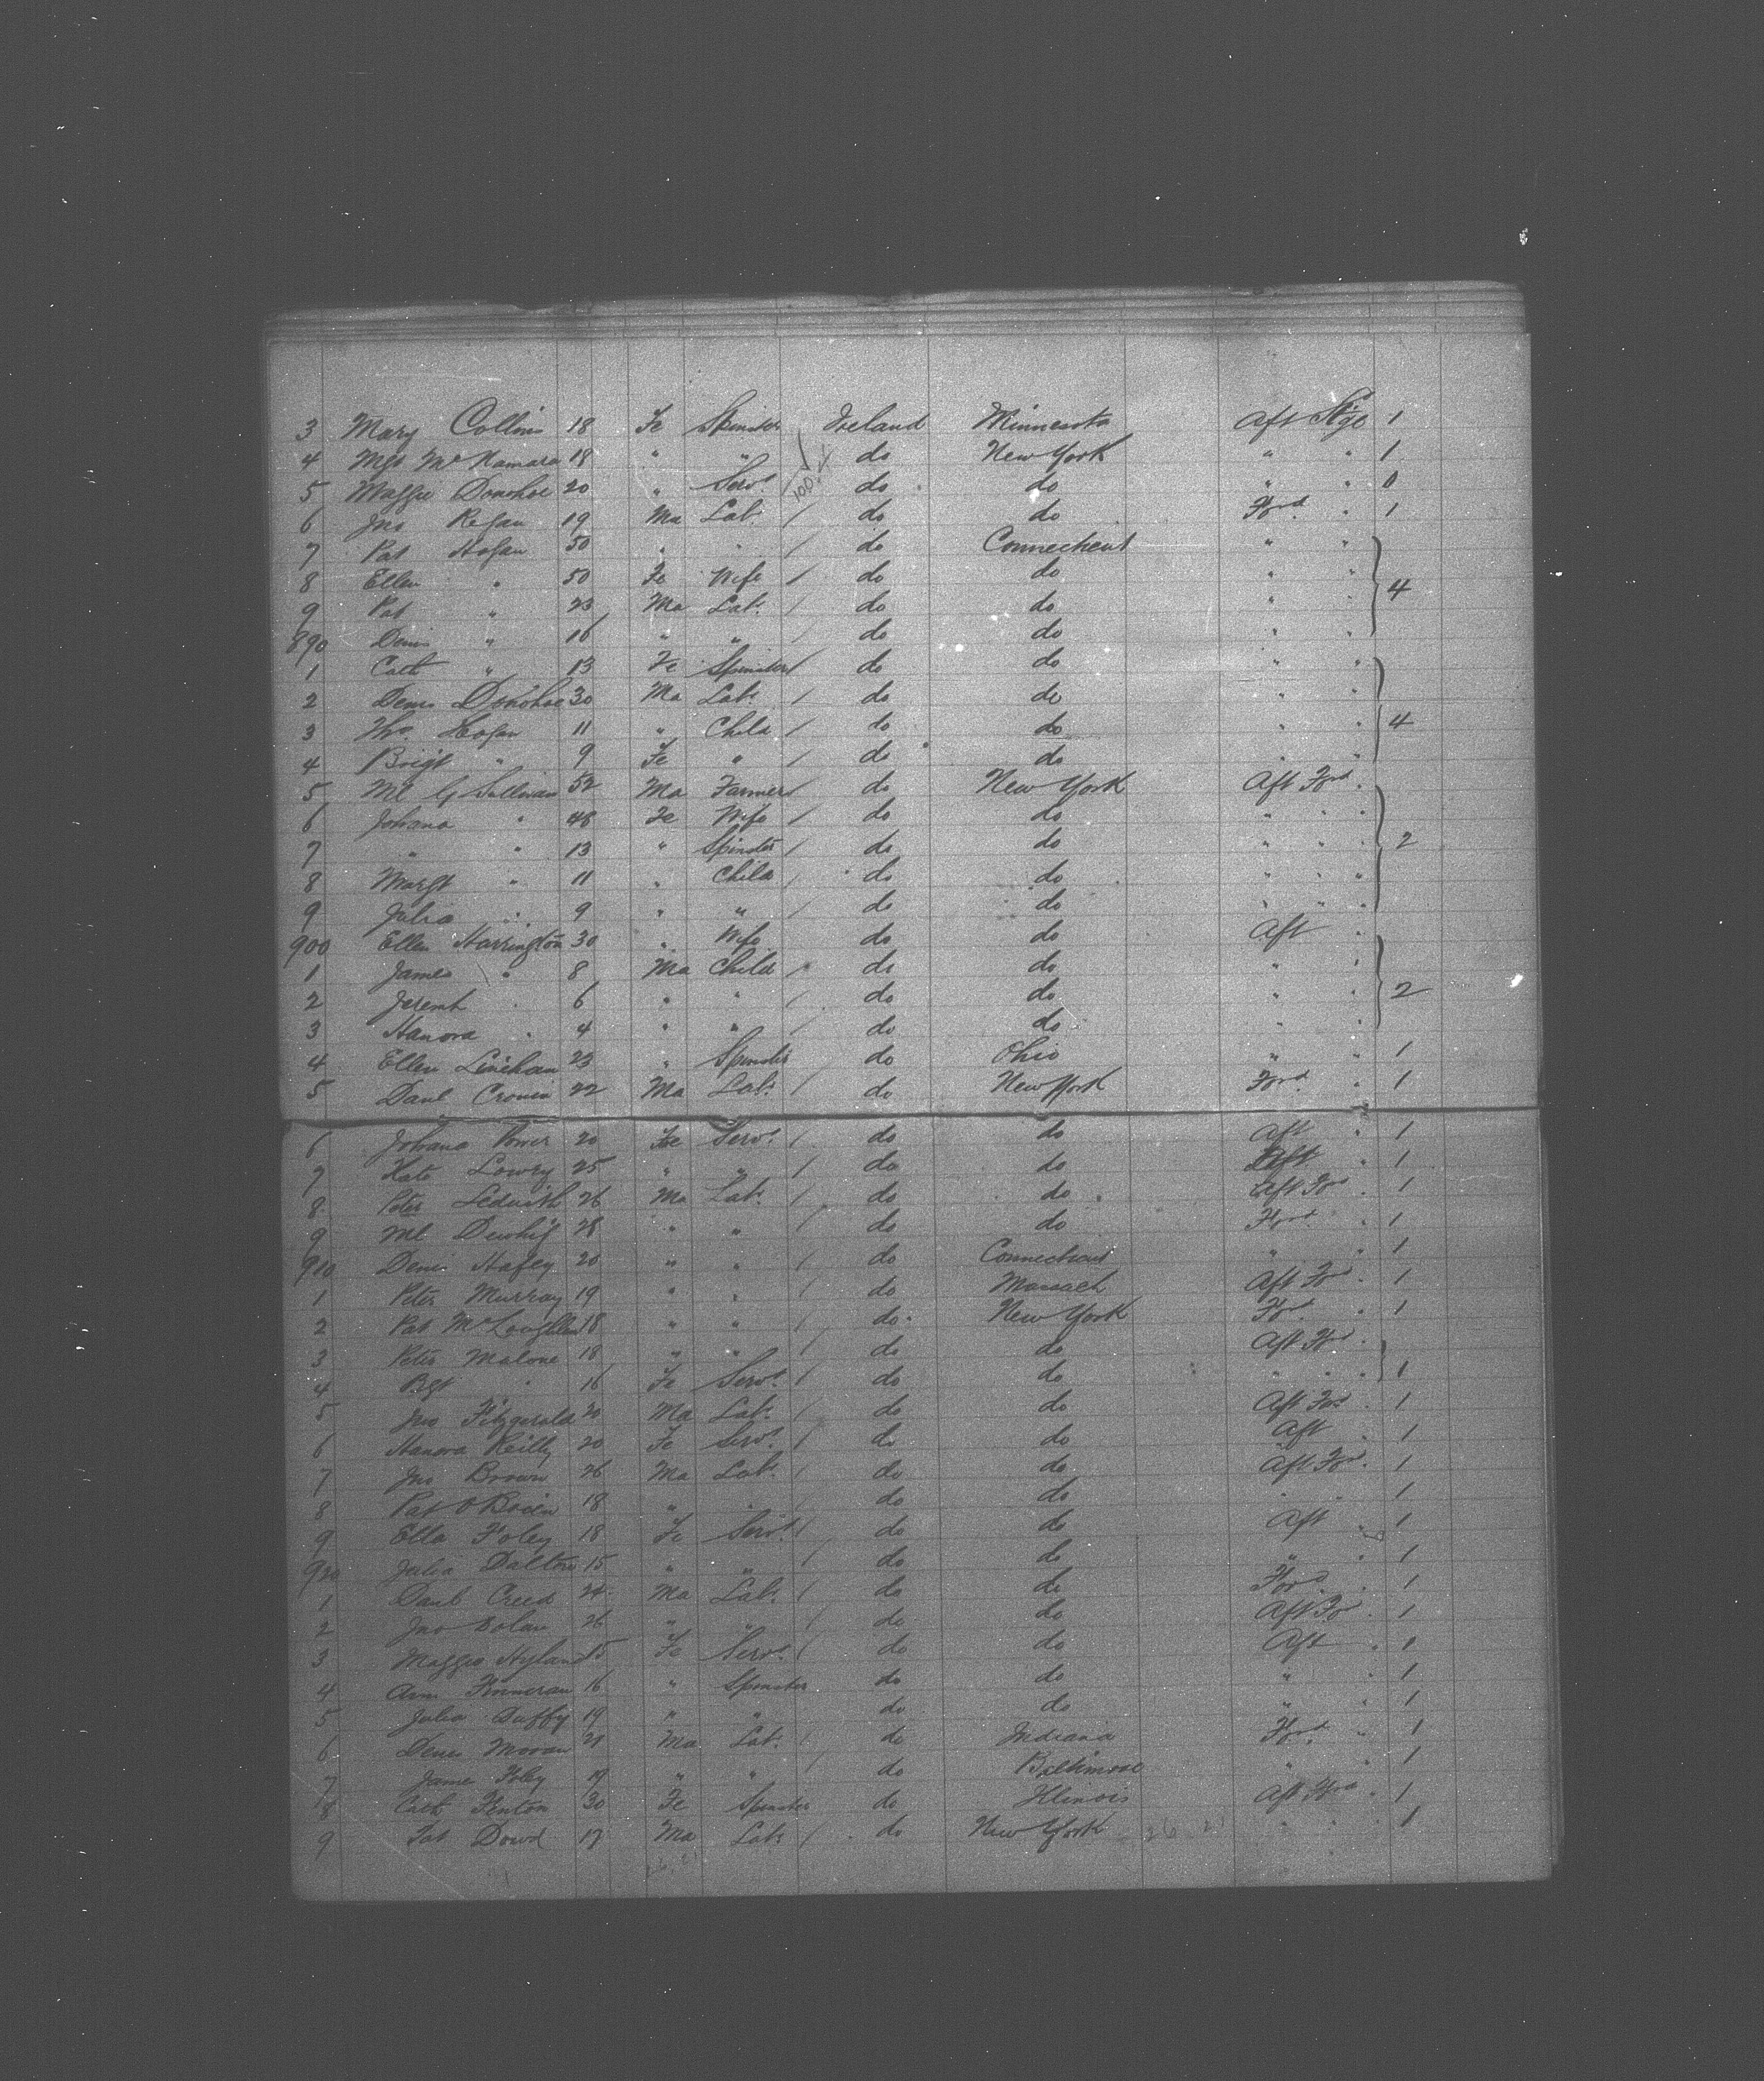 3 Mary Collins 18 Fe Spinster Ireland Minnesota Aft Stge 1
4 Mgt McNamara 18 " " do New York " " 1
5 Maggie Donohoe 20 " Servt do do " " 0
6 Jno Regan 19 Ma Labr / do do Ford " 1
7 Pat Hogan 50 " " / do Connecticut " "
8 Ellen " 50 Fe Wife / do do " " 4
9 Pat " 23 Ma Labr / do do " "
890 Denis " 16 " " / do do " "
1 Cath " 13 Fe Spinster / do do " "
2 Denis Donohoe 30 Ma Labr / do do " "
3 Thos Hogan 11 " Child / do do " " 4
4 Brigt " 9 Fe " / do do " "
5 Ml Sullivan 52 Ma Farmer / do New York Aft Ford "
6 Johana " 48 Fe Wife / do do " " "
7 " " 13 " Spinster / do do " " " 2
8 Margt " 11 " Child / do do " " "
9 Julia " 9 " " / do do " " "
900 Ellen Harrington 30 " Wife do do Aft "
1 James " 8 Ma Child / do do " "
2 Jeremh " 6 " " / do do " " 2
3 Hanora " 4 " " / do do " "
4 Ellen Linehan 23 " Spinster do Ohio " " 1
5 Danl Cronin 22 Ma Labr / do New York Ford " 1
6 Johana Power 20 Fe Servt / do do Aft " 1
7 Kate Lowry 25 " " / do do Aft " 1
8 Peter Ledwith 26 Ma Labr / do do Aft Ford " 1
9 Ml Dewhig 28 " " / do do Ford " 1
910 Denis Hafey 20 " " / do Connecticut " " 1
1 Peter Murray 19 " " / do Massach Aft Ford " 1
2 Pat McLoughlin 18 " " / do New York Ford " 1
3 Peter Malone 18 " " / do do Aft Ford "
4 Bgt " 16 Fe Servt / do do " " " 1
5 Jno Fitzgerald 20 Ma Labr / do do Aft Ford " 1
6 Hanora Reilly 20 Fe Servt / do do Aft " 1
7 Jno Brown 26 Ma Labr / do do Aft Ford " 1
8 Pat O'Brien 18 " " / do do " " 1
9 Ella Foley 18 Fe Servt / do do Aft " 1
920 Julia Dalton 15 " " / do do " " 1
1 Danl Creed 24 Ma Labr / do do Ford " 1
2 Jno Dolan 26 " " / do do Aft For " 1
3 Maggie Hyland 15 Fe Servt / do do Aft " 1
4 Ann Finneran 16 " Spinster do do " " 1
5 Julia Duffy 19 " " do do " " 1
6 Denis Moran 21 Ma Labr / do Indiana Ford " 1
7 James Foley 19 " " / do Baltimore " " 1
8 Cath Fenton 30 Fe Spinster do Illinois Aft Ford " 1
9 Pat Dowd 17 Ma Labr / do New York " " " 1